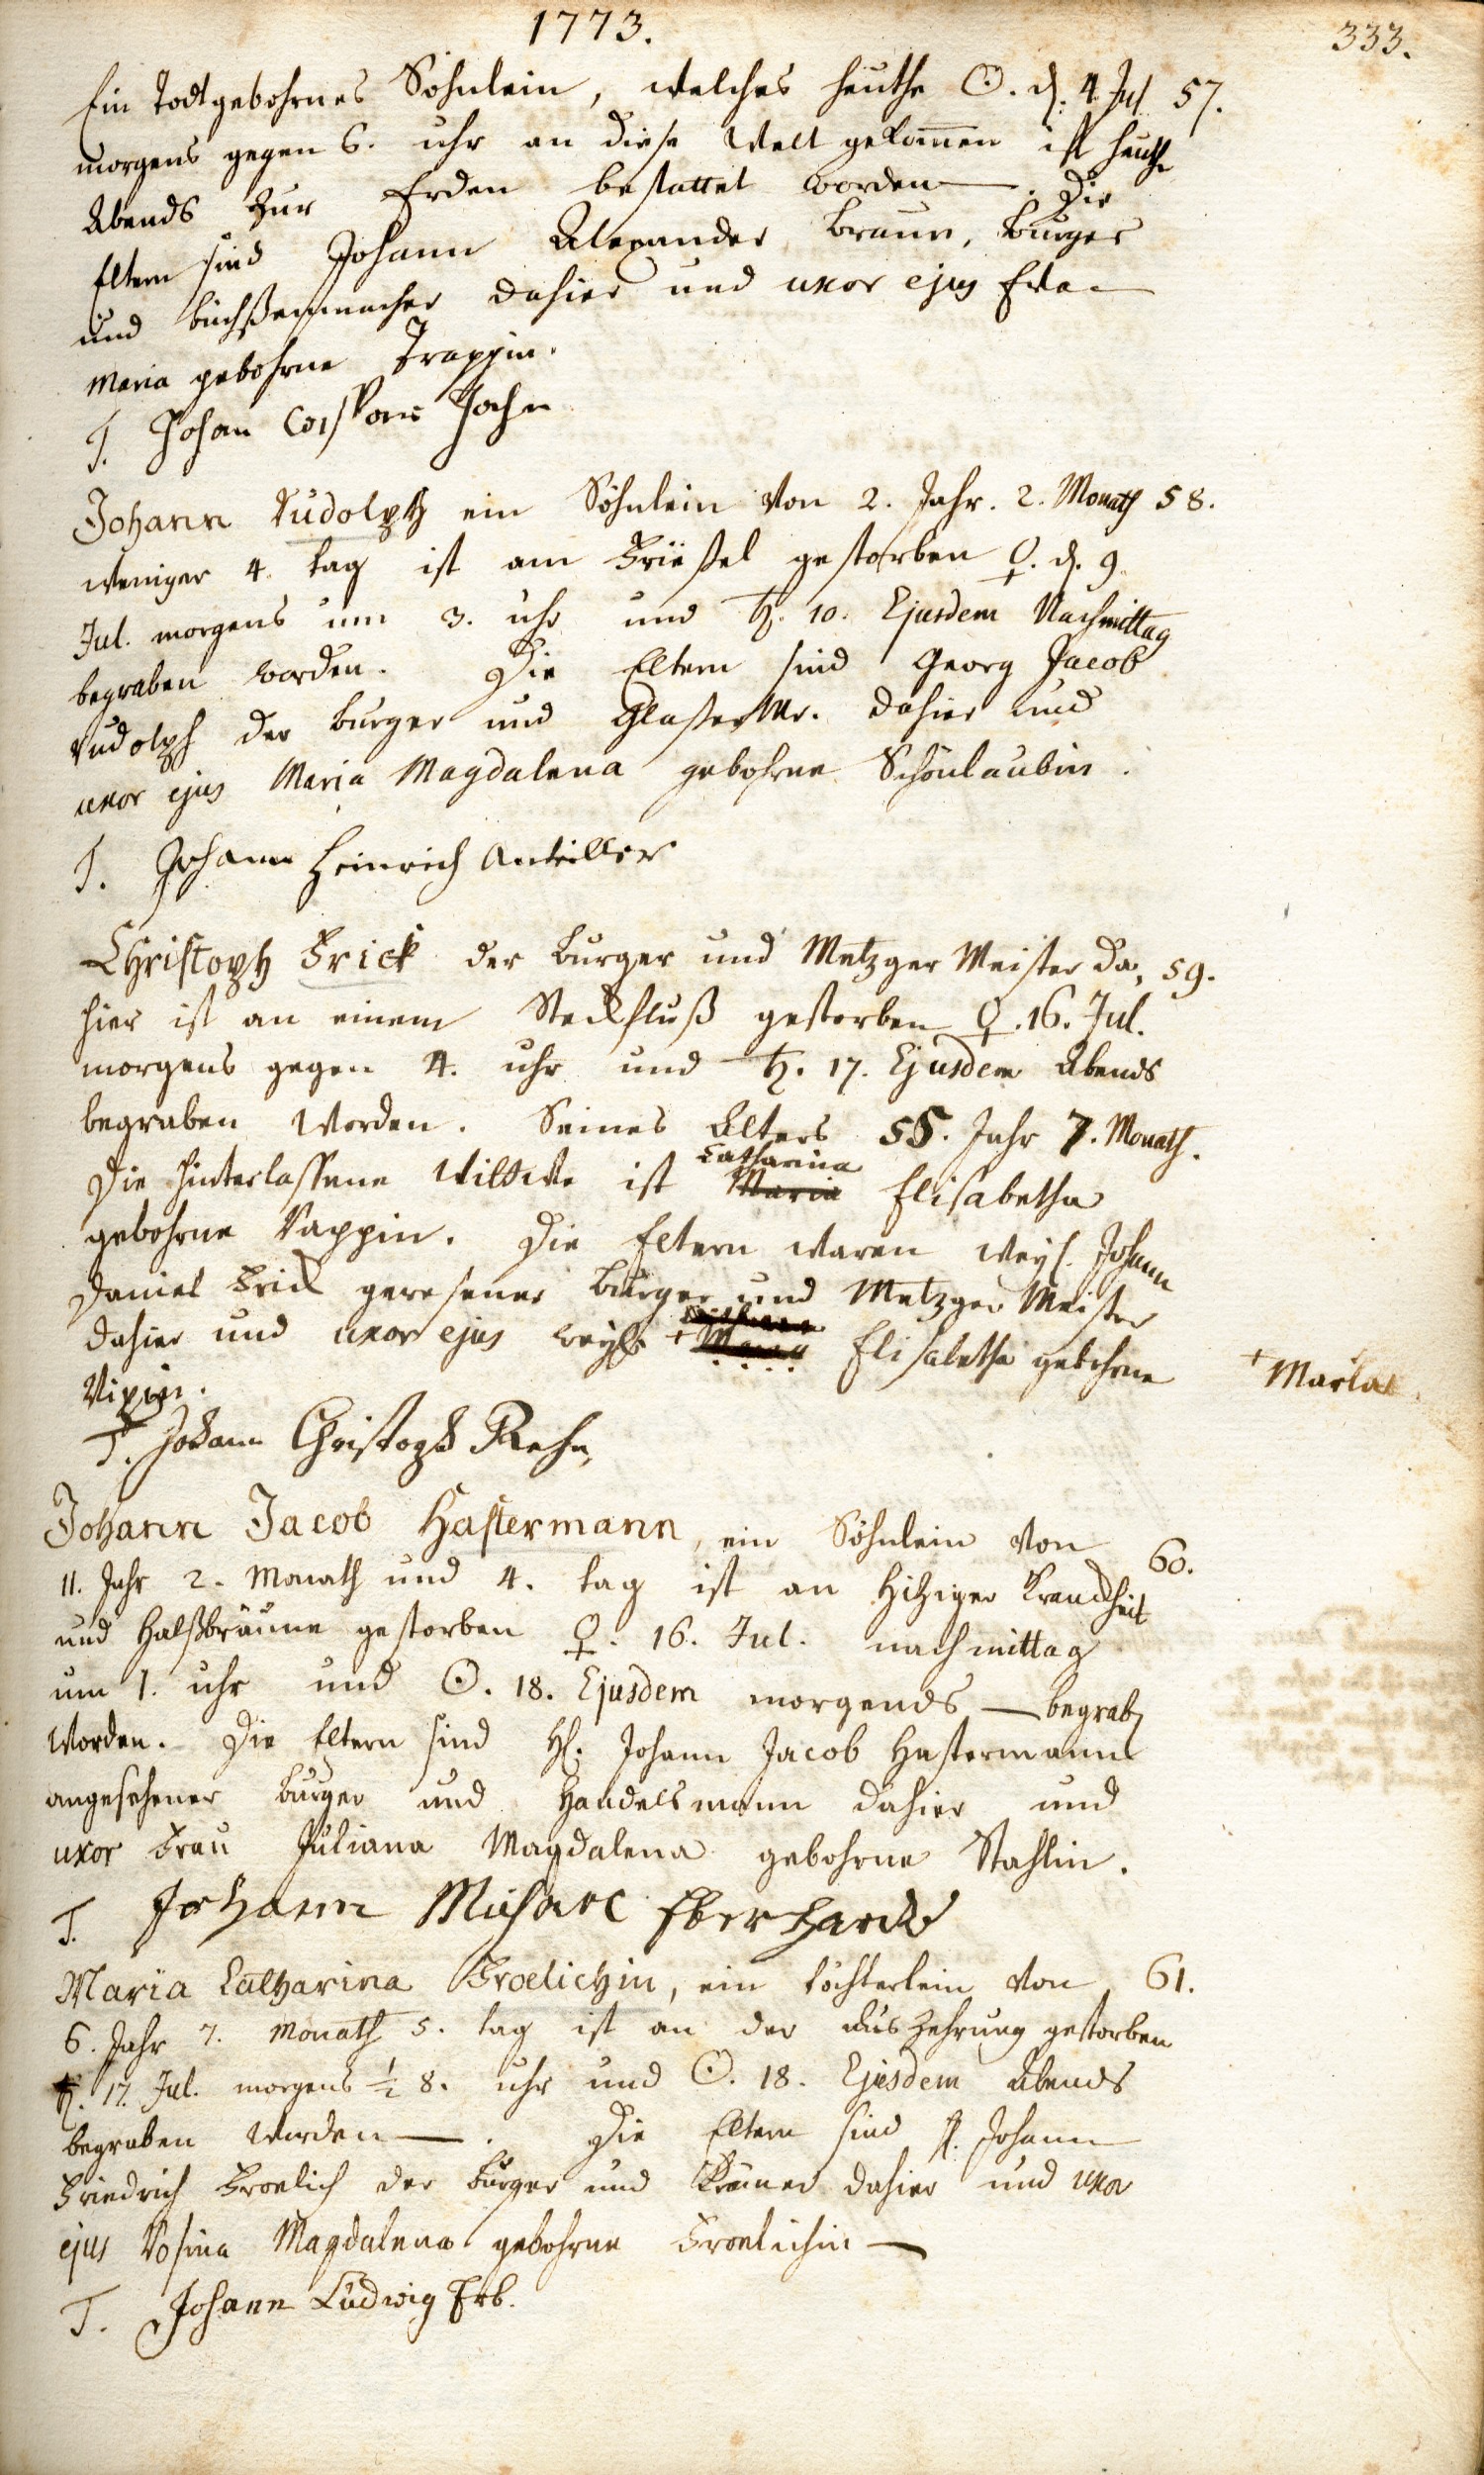 1773.
333.
Ein Todtgebohrnes Söhnlein, welches heuthe ☉. d. 4. Jul. 57.
morgens gegen 6. uhr an diese Welt gekom̅en ist heuthe
Abends zur Erden bestattet worden. Die
Eltern sind Johann Alexander Braun, Burger
und büchßenmacher dahier und uxor ejus Eva
Maria gebohrne Trappin.
T. Johan Jahn
Johann Rudolph ein Söhnlein von 2. Jahr. 2. Monath 58.
weniger 4. tag ist am Frießel gestorben ♀. d. 9.
Jul. morgens um 3. uhr und ♄. 10. Ejusdem Nachmittag
begraben worden. Die Eltern sind Georg Jacob
Rudolph der burger und GlaserMr. dahier und
uxor ejus Maria Magdalena gebohrne Schönlaubin.
T. Johann Heinrich
Christoph Frick der burger und Metzger Meister da, 59.
hier ist an einem Steckfluß gestorben ♀. 16. Jul.
morgens gegen 4. uhr und ♄. 17. Ejusdem Abends
begraben worden. Seines Alters 55. Jahr 7. Monath.
Catharina
Die hinterlassene Wittwe ist Maria Elisabetha
gebohrne Rappin. Die Eltern waren weyl. Johann
Daniel Frick gewesener burger und Metzger Meister
dahier und uxor ejus weyl. + Maria Elisabetha gebohrne
+ Maria
T. Johann Christoph Rehn,
Johann Jacob Hastermann, ein Söhnlein von 60.
11. Jahr 2. Monath und 4. tag ist an hitziger Kranckheit
und Halßbräune gestorben ♀. 16. Jul. nachmittag
um 1. uhr und ☉. 18. Ejusdem morgends — begrab
worden. Die Eltern sind H. Johann Jacob Hastermann
angesehener burger und Handelsmann dahier und
uxor Frau Juliana Magdalena gebohrne Stahlin.
T. Johann Michael Eberhardt
Maria Catharina Froelichin, ein töchterlein von 61.
6. Jahr 7. Monath 5. tag ist an der Auszehrung gestorben
♄. 17. Jul. morgens ½ 8. uhr und ☉. 18. Ejusdem Abends
begraben worden —. Die Eltern sind H. Johann
Friedrich Froelich der burger und Krämer dahier und uxor
ejus Rosina Magdalena gebohrne Froelichin —
T. Johann Ludwig Erb.